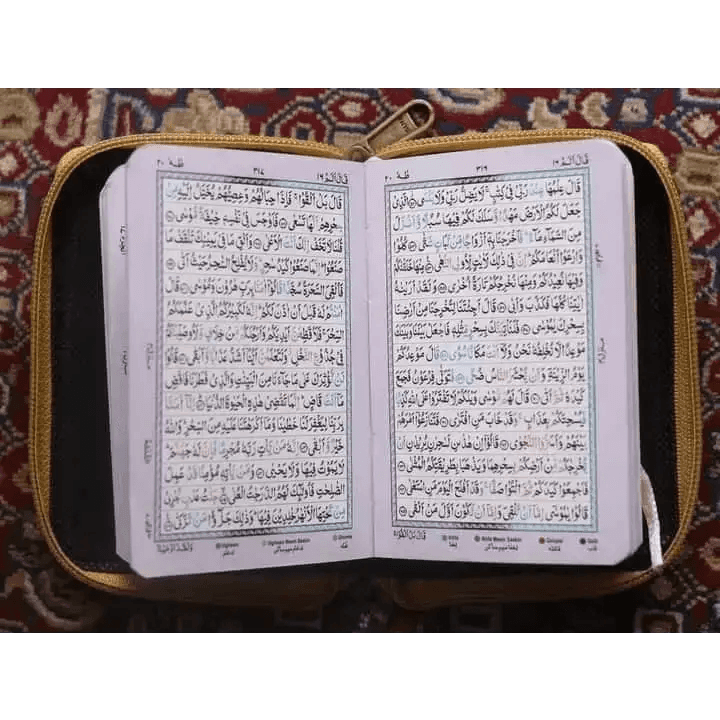 قَالَ اَلَمْ ١٦ ٣١٦ طٰهٰ ٢٠
قَالَ عِلْمُهَا عِنْدَ رَبِّیْ فِیْ كِتٰبٍ ۚ لَا یَضِلُّ رَبِّیْ وَلَا یَنْسَی ۝ الَّذِیْ
جَعَلَ لَكُمُ الْاَرْضَ مَهْدًا وَّسَلَكَ لَكُمْ فِیْهَا سُبُلًا وَّاَنْزَلَ
مِنَ السَّمَآءِ مَآءً ؕ فَاَخْرَجْنَا بِهٖۤ اَزْوَاجًا مِّنْ نَّبَاتٍ شَتّٰی ۝ كُلُوْا
وَارْعَوْا اَنْعَامَكُمْ ؕ اِنَّ فِیْ ذٰلِكَ لَاٰیٰتٍ لِّاُولِی النُّهٰی ۝ مِنْهَا خَلَقْنٰكُمْ
وَفِیْهَا نُعِیْدُكُمْ وَمِنْهَا نُخْرِجُكُمْ تَارَةً اُخْرٰی ۝ وَلَقَدْ اَرَیْنٰهُ
اٰیٰتِنَا كُلَّهَا فَكَذَّبَ وَاَبٰی ۝ قَالَ اَجِئْتَنَا لِتُخْرِجَنَا مِنْ اَرْضِنَا
بِسِحْرِكَ یٰمُوْسٰی ۝ فَلَنَاْتِیَنَّكَ بِسِحْرٍ مِّثْلِهٖ فَاجْعَلْ بَیْنَنَا وَبَیْنَكَ
مَوْعِدًا لَّا نُخْلِفُهٗ نَحْنُ وَلَاۤ اَنْتَ مَكَانًا سُوًی ۝ قَالَ مَوْعِدُكُمْ
یَوْمُ الزِّیْنَةِ وَاَنْ یُّحْشَرَ النَّاسُ ضُحًی ۝ فَتَوَلّٰی فِرْعَوْنُ فَجَمَعَ
كَیْدَهٗ ثُمَّ اَتٰی ۝ قَالَ لَهُمْ مُّوْسٰی وَیْلَكُمْ لَا تَفْتَرُوْا عَلَی اللّٰهِ كَذِبًا
فَیُسْحِتَكُمْ بِعَذَابٍ ۚ وَقَدْ خَابَ مَنِ افْتَرٰی ۝ فَتَنَازَعُوْۤا اَمْرَهُمْ
بَیْنَهُمْ وَاَسَرُّوا النَّجْوٰی ۝ قَالُوْۤا اِنْ هٰذٰنِ لَسٰحِرٰنِ یُرِیْدٰنِ اَنْ
یُّخْرِجٰكُمْ مِّنْ اَرْضِكُمْ بِسِحْرِهِمَا وَیَذْهَبَا بِطَرِیْقَتِكُمُ الْمُثْلٰی ۝
فَاَجْمِعُوْا كَیْدَكُمْ ثُمَّ ائْتُوْا صَفًّا ۚ وَقَدْ اَفْلَحَ الْیَوْمَ مَنِ اسْتَعْلٰی ۝
قَالُوْا یٰمُوْسٰۤی اِمَّاۤ اَنْ تُلْقِیَ وَاِمَّاۤ اَنْ نَّكُوْنَ اَوَّلَ مَنْ اَلْقٰی ۝
قَالَ بَلْ اَلْقُوْا
Ikhfa Ikhfa Meem Saakin Qalqala Qalb
قَالَ اَلَمْ ١٦ ٣١٧ طٰهٰ ٢٠
قَالَ بَلْ اَلْقُوْا ۚ فَاِذَا حِبَالُهُمْ وَعِصِیُّهُمْ یُخَیَّلُ اِلَیْهِ مِنْ
سِحْرِهِمْ اَنَّهَا تَسْعٰی ۝ فَاَوْجَسَ فِیْ نَفْسِهٖ خِیْفَةً مُّوْسٰی ۝
قُلْنَا لَا تَخَفْ اِنَّكَ اَنْتَ الْاَعْلٰی ۝ وَاَلْقِ مَا فِیْ یَمِیْنِكَ تَلْقَفْ مَا
صَنَعُوْا ؕ اِنَّمَا صَنَعُوْا كَیْدُ سٰحِرٍ ؕ وَلَا یُفْلِحُ السَّاحِرُ حَیْثُ اَتٰی ۝
فَاُلْقِیَ السَّحَرَةُ سُجَّدًا قَالُوْۤا اٰمَنَّا بِرَبِّ هٰرُوْنَ وَمُوْسٰی ۝ قَالَ
اٰمَنْتُمْ لَهٗ قَبْلَ اَنْ اٰذَنَ لَكُمْ ؕ اِنَّهٗ لَكَبِیْرُكُمُ الَّذِیْ عَلَّمَكُمُ
السِّحْرَ ۚ فَلَاُقَطِّعَنَّ اَیْدِیَكُمْ وَاَرْجُلَكُمْ مِّنْ خِلَافٍ وَّلَاُوصَلِّبَنَّكُمْ
فِیْ جُذُوْعِ النَّخْلِ ۫ وَلَتَعْلَمُنَّ اَیُّنَاۤ اَشَدُّ عَذَابًا وَّاَبْقٰی ۝ قَالُوْا
لَنْ نُّؤْثِرَكَ عَلٰی مَا جَآءَنَا مِنَ الْبَیِّنٰتِ وَالَّذِیْ فَطَرَنَا فَاقْضِ
مَاۤ اَنْتَ قَاضٍ ؕ اِنَّمَا تَقْضِیْ هٰذِهِ الْحَیٰوةَ الدُّنْیَا ۝ اِنَّاۤ اٰمَنَّا
بِرَبِّنَا لِیَغْفِرَ لَنَا خَطٰیٰنَا وَمَاۤ اَكْرَهْتَنَا عَلَیْهِ مِنَ السِّحْرِ ؕ وَاللّٰهُ
خَیْرٌ وَّاَبْقٰی ۝ اِنَّهٗ مَنْ یَّاْتِ رَبَّهٗ مُجْرِمًا فَاِنَّ لَهٗ جَهَنَّمَ ؕ
لَا یَمُوْتُ فِیْهَا وَلَا یَحْیٰی ۝ وَمَنْ یَّاْتِهٖ مُؤْمِنًا قَدْ عَمِلَ
الصّٰلِحٰتِ فَاُولٰٓىِٕكَ لَهُمُ الدَّرَجٰتُ الْعُلٰی ۝ جَنّٰتُ عَدْنٍ تَجْرِیْ
مِنْ تَحْتِهَا الْاَنْهٰرُ خٰلِدِیْنَ فِیْهَا ؕ وَذٰلِكَ جَزٰٓؤُا مَنْ تَزَكّٰی ۝
Idghaam Idghaam Meem Saakin Ghunna